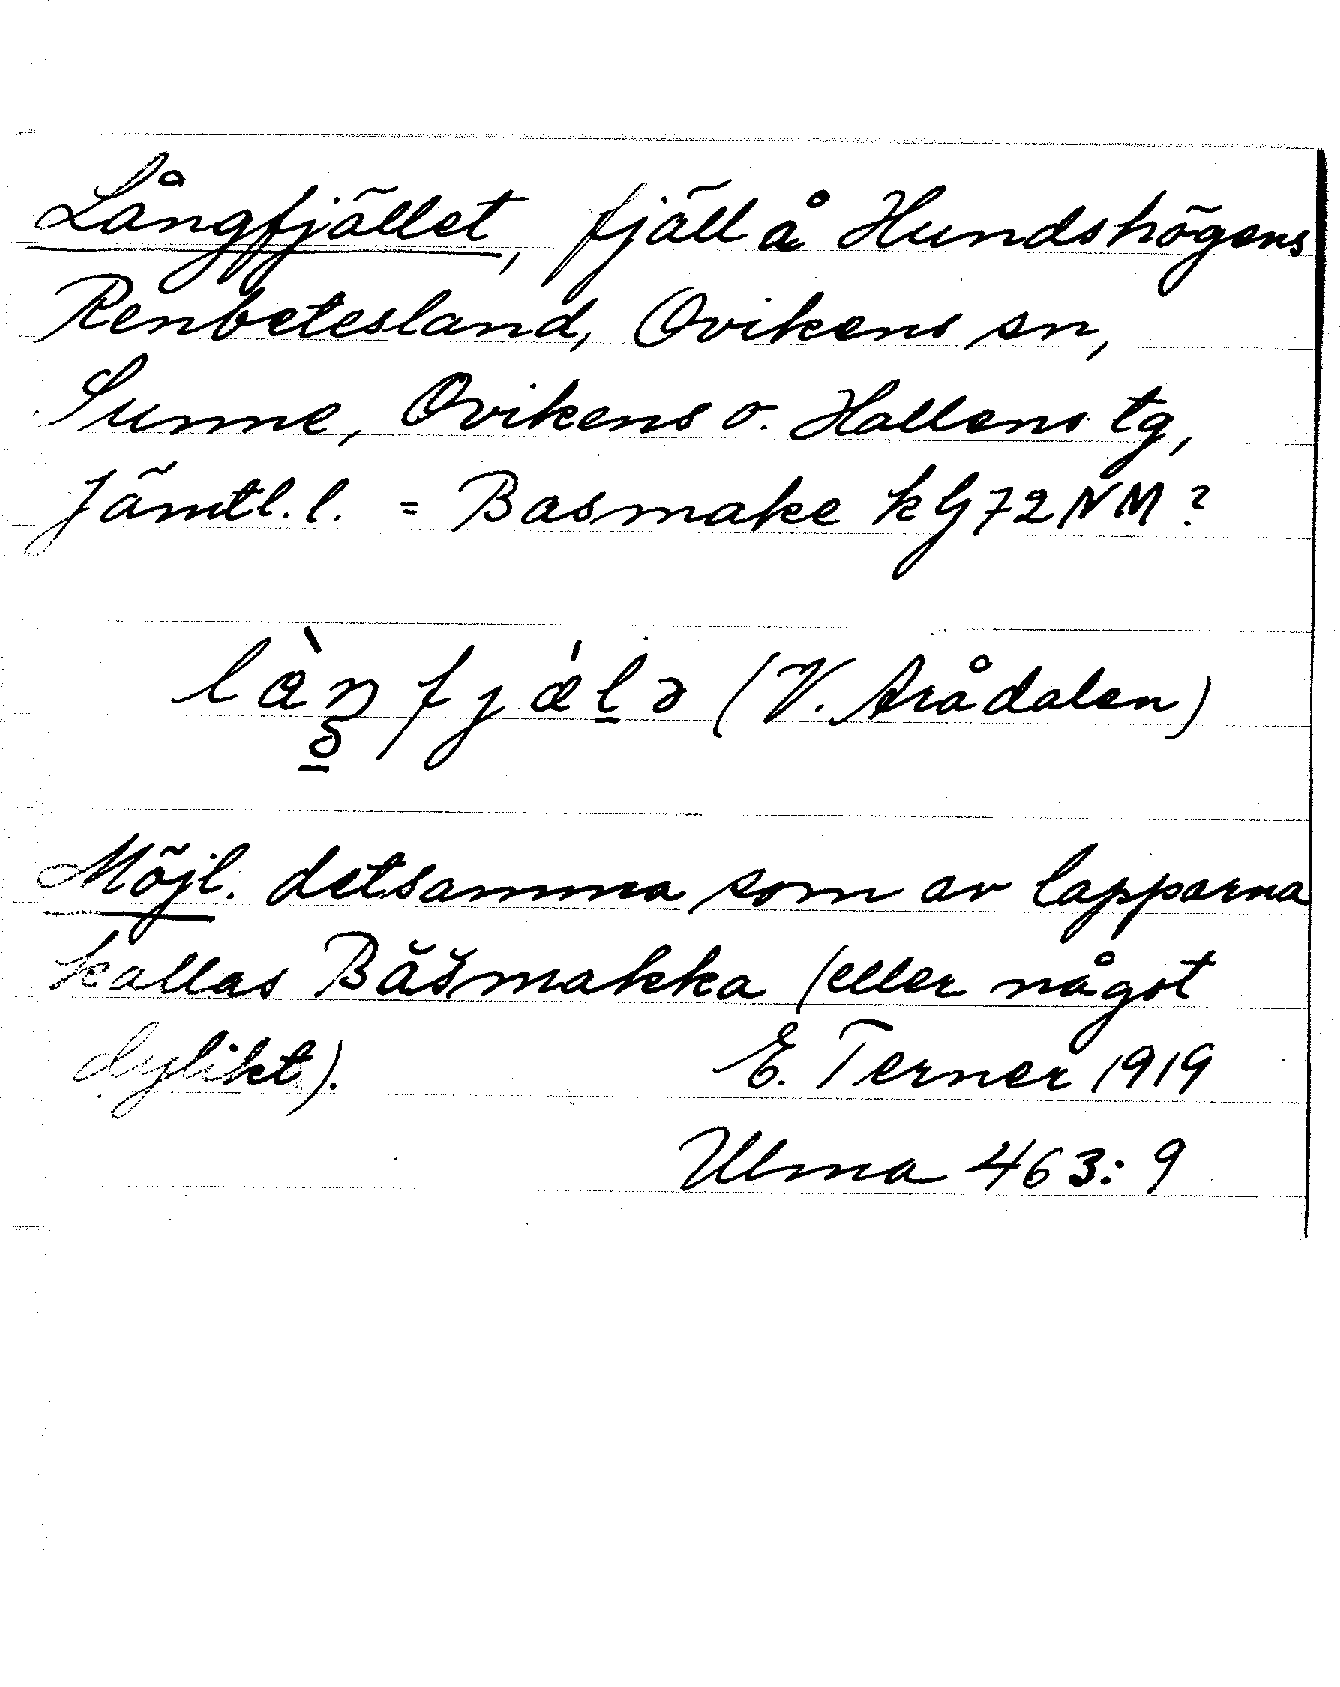 Långfjället, fjäll å Hundshögens
Renbetesland, Ovikens sn,
Sunne, Ovikens o. Hallens tg,
Jämtl. l. = Basmake kG72NM?
làŋfjælə (V. Arådalen)
Möjl. detsamma som av lapparna
kallas Băšmakka (eller något
dylikt).
E. Terner 1919
Ulma 463:9